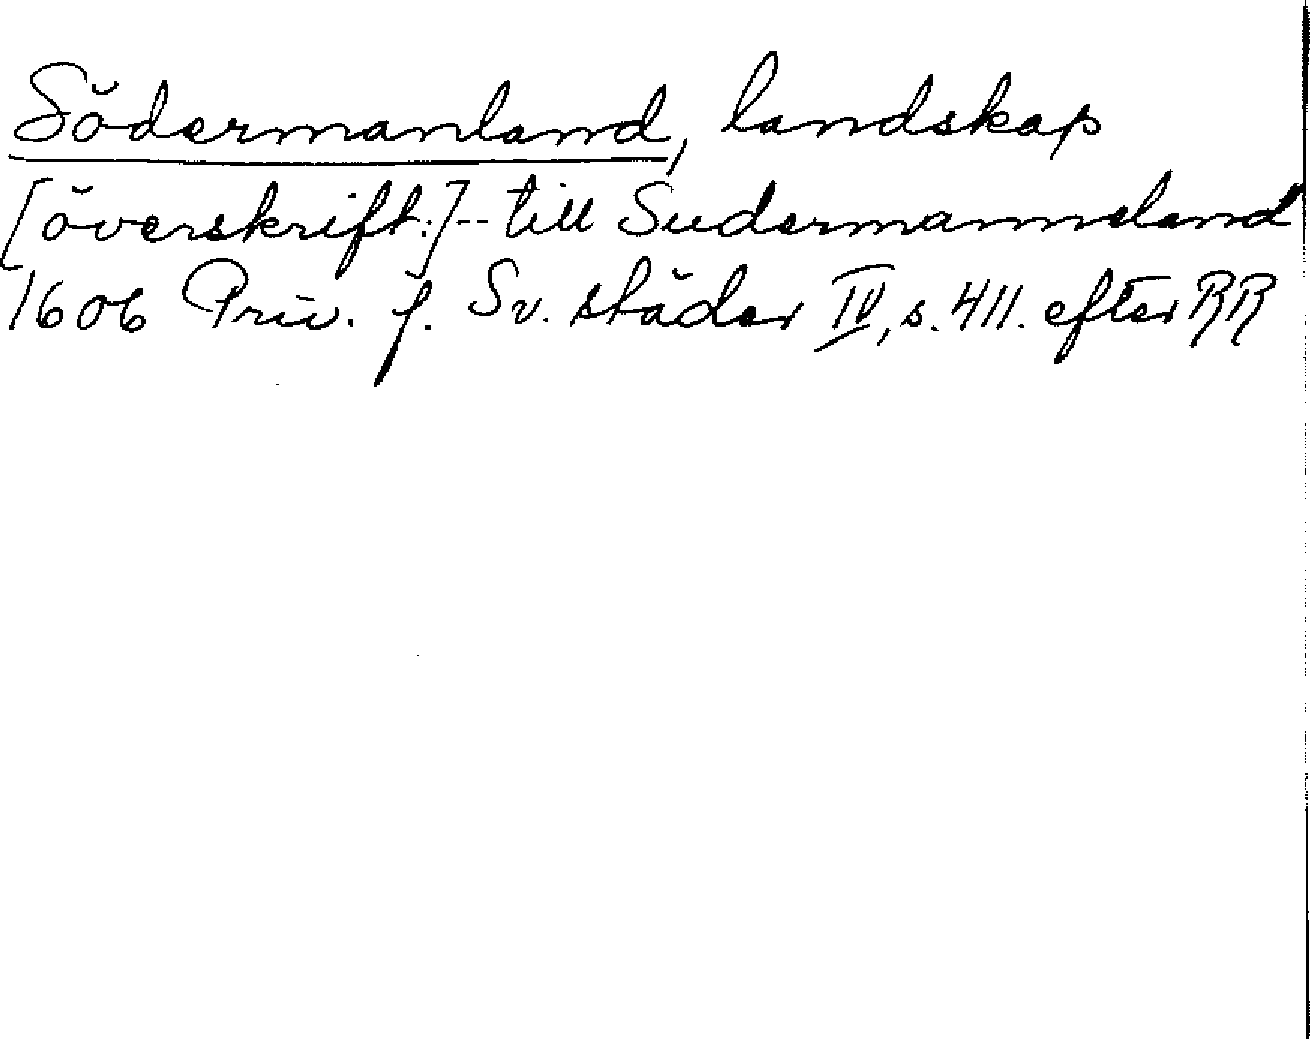 Södermanland, landskap
[överskrift:] -- till Sudermanneland
1606 Priv. f. Sv. städer IV, s. 411. efter RR